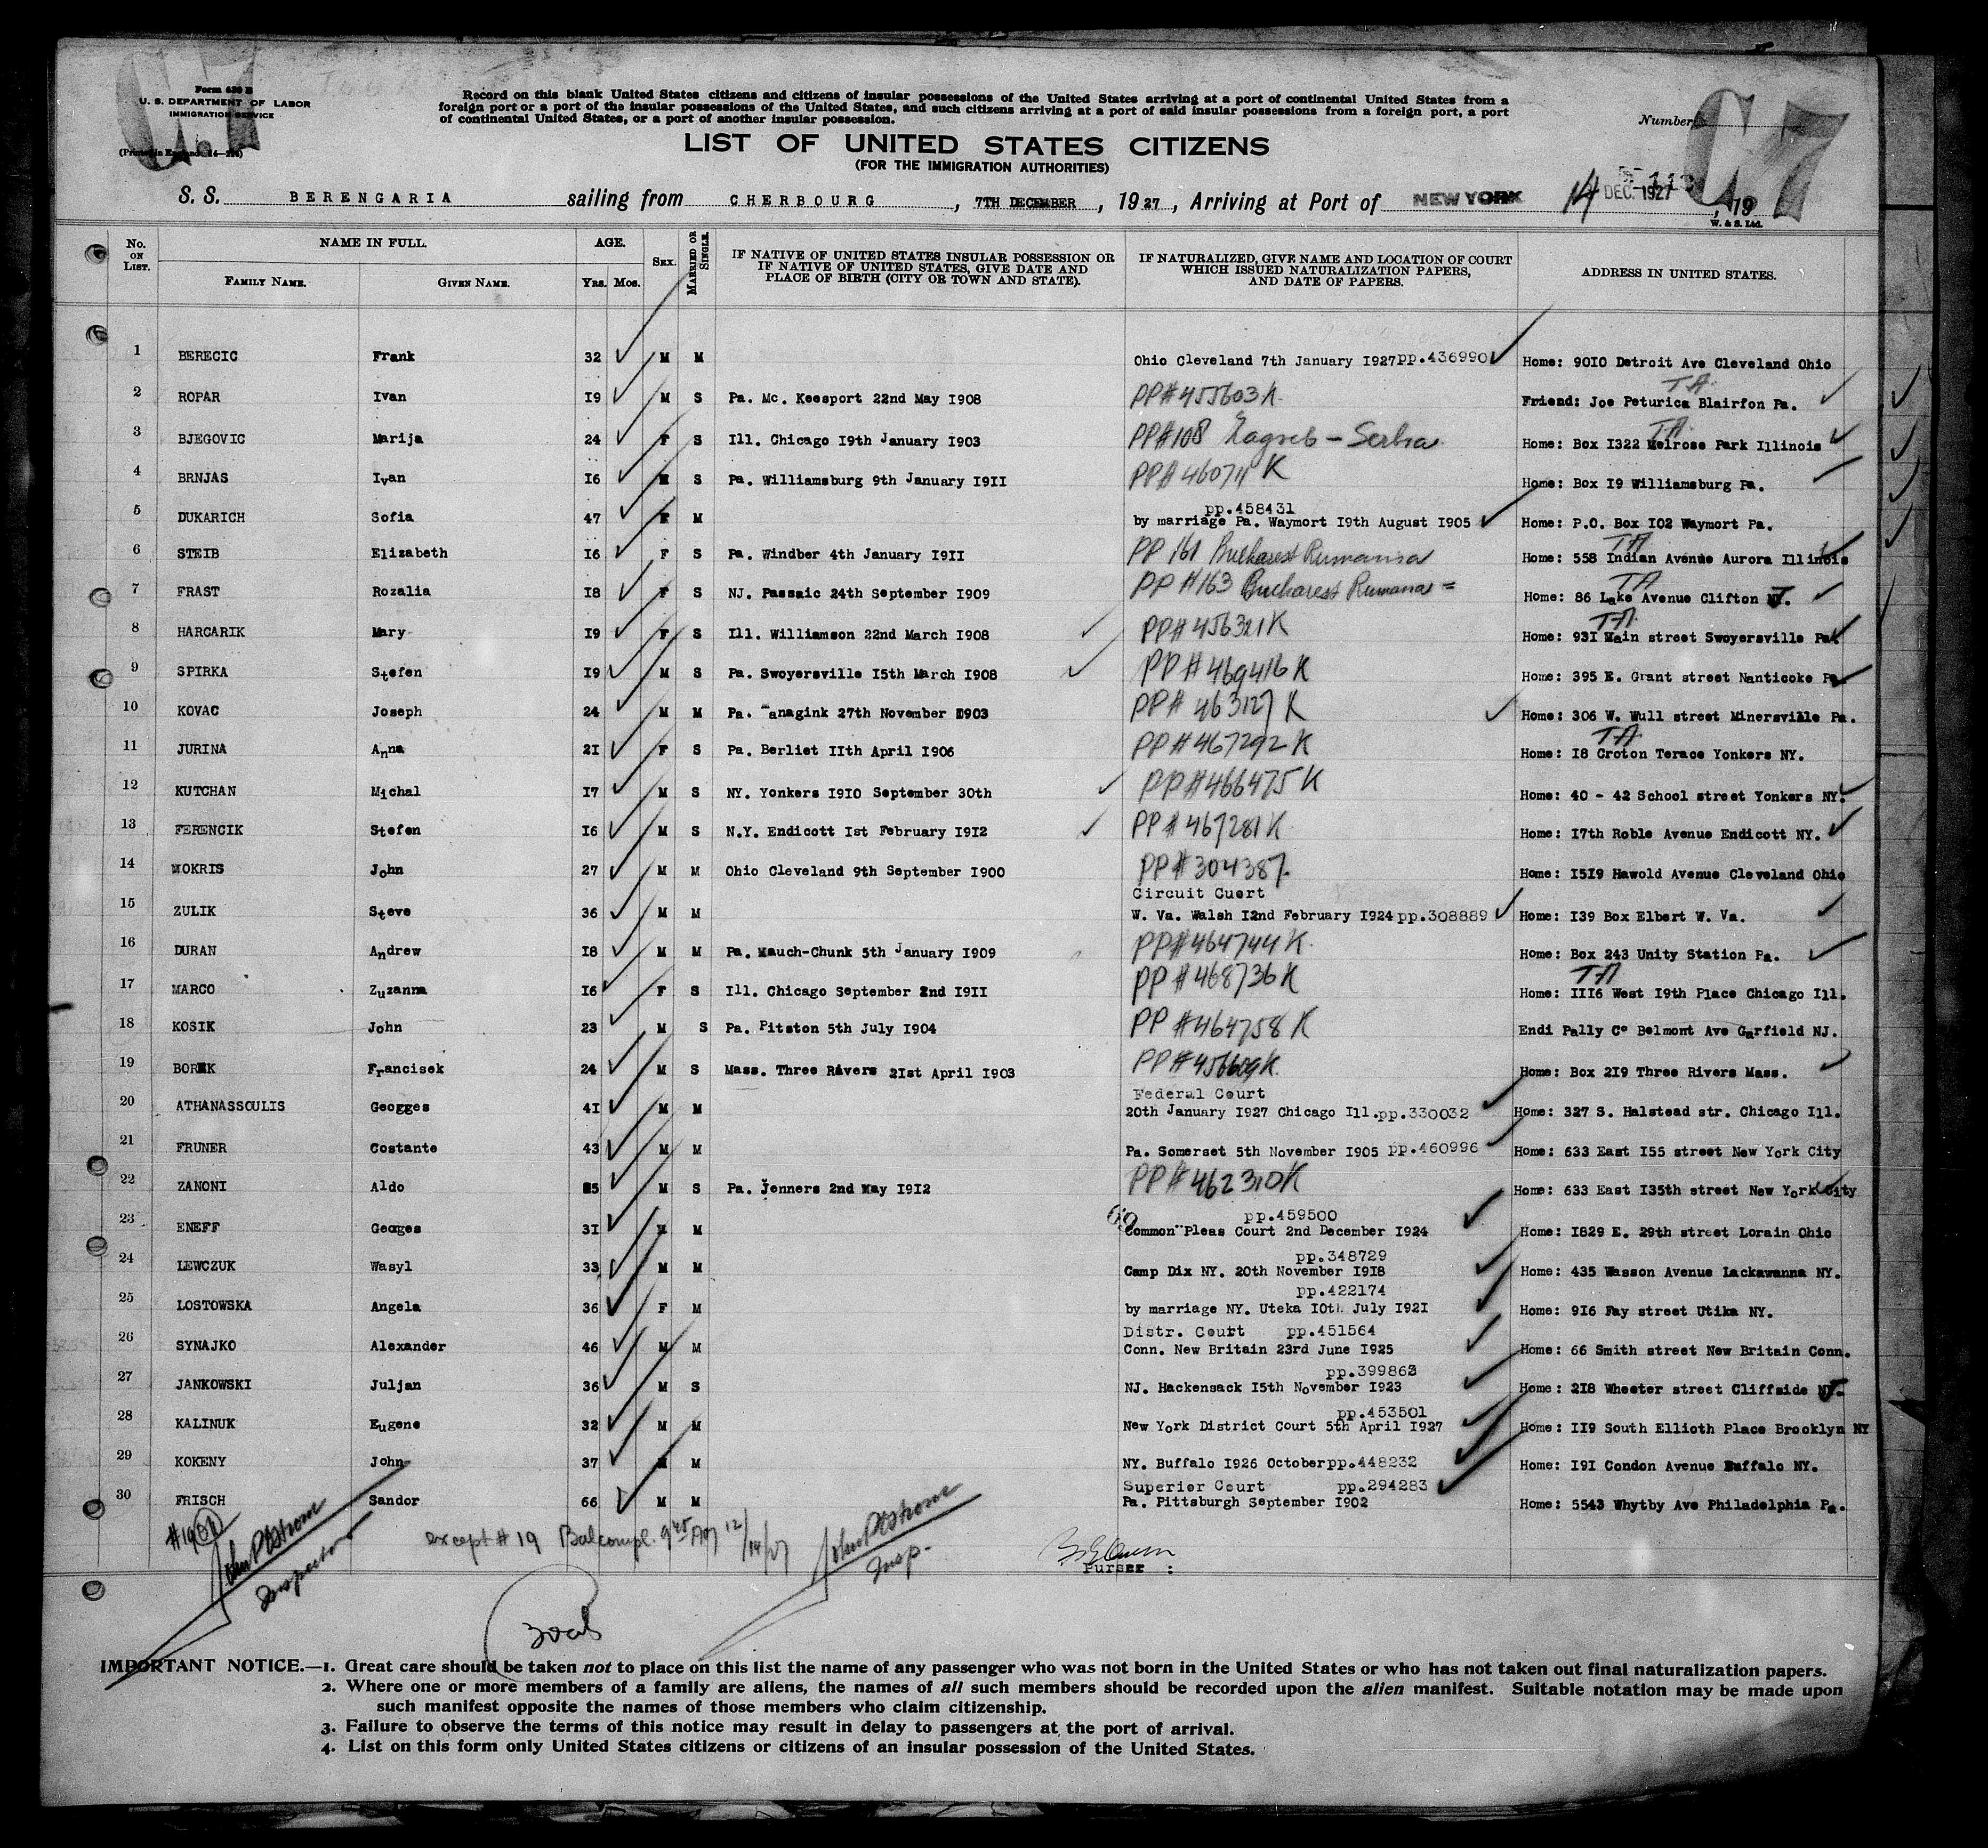 C7
Form 630 B
U. S. DEPARTMENT OF LABOR
IMMIGRATION SERVICE
Record on this blank United States citizens and citizens of insular possessions of the United States arriving at a port of continental United States from a
foreign port or a port of the insular possessions of the United States, and such citizens arriving at a port of said insular possessions from a foreign port, a port
of continental United States, or a port of another insular possession.
Number
C7
LIST OF UNITED STATES CITIZENS
(FOR THE IMMIGRATION AUTHORITIES)
S. S. BERENGARIA sailing from CHERBOURG, 7TH DECEMBER, 1927, Arriving at Port of NEW YORK 14 DEC. 1927, 19
W. & S. Ltd.
No. ON LIST. NAME IN FULL. FAMILY NAME. GIVEN NAME. AGE. YRS. MOS. SEX. MARRIED OR SINGLE. IF NATIVE OF UNITED STATES INSULAR POSSESSION OR IF NATIVE OF UNITED STATES, GIVE DATE AND PLACE OF BIRTH (CITY OR TOWN AND STATE). IF NATURALIZED, GIVE NAME AND LOCATION OF COURT WHICH ISSUED NATURALIZATION PAPERS, AND DATE OF PAPERS. ADDRESS IN UNITED STATES.
1 BERECIC Frank 32 M M Ohio Cleveland 7th January I927 pp.436990 Home: 90I0 Detroit Ave Cleveland Ohio
TA
2 ROPAR Ivan I9 M S Pa. Mc. Keesport 22nd May I908 PP#455603K Friend: Joe Peturica Blairfon Pa.
TA
3 BJEGOVIC Marija 24 F S Ill. Chicago I9th January I903 PP#108 Zagreb - Serbia Home: Box I322 Melrose Park Illinois
4 BRNJAS Ivan I6 M S Pa. Williamsburg 9th January I9II PP#460711 K Home: Box I9 Williamsburg Pa.
pp.458431
5 DUKARICH Sofia 47 F M by marriage Pa. Waymort I9th August I905 Home: P.O. Box I02 Waymort Pa.
TA
6 STEIB Elizabeth I6 F S Pa. Windber 4th January I9II PP 161 Bucharest Rumania Home: 558 Indian Avenue Aurora Illinois
TA
7 FRAST Rozalia I8 F S NJ. Passaic 24th September I909 PP #163 Bucharest Rumana = Home: 86 Lake Avenue Clifton NJ.
TA
8 HARCARIK Mary I9 F S Ill. Williamson 22nd March I908 PP#456321K Home: 93I Main street Swoyersville Pa.
9 SPIRKA Stefen I9 M S Pa. Swoyersville I5th March I908 PP#469416K Home: 395 E. Grant street Nanticoke Pa
10 KOVAC Joseph 24 M M Pa. anagink 27th November I903 PP# 463127 K Home: 306 W. Wull street Minersville Pa.
TA
11 JURINA Anna 2I F S Pa. Berliet IIth April I906 PP#467292K Home: I8 Croton Terace Yonkers NY.
12 KUTCHAN Michal I7 M S NY. Yonkers I9I0 September 30th PP#466475K Home: 40 - 42 School street Yonkers NY.
13 FERENCIK Stefen I6 M S N.Y. Endicott Ist February I9I2 PP#467281K Home: I7th Roble Avenue Endicott NY.
14 MOKRIS John 27 M M Ohio Cleveland 9th September I900 PP#304387. Home: I5I9 Hawold Avenue Cleveland Ohio
Circuit Cuert
15 ZULIK Steve 36 M M W. Va. Walsh I2nd February I924 pp.308889 Home: I39 Box Elbert W. Va.
16 DURAN Andrew I8 M M Pa. Mauch-Chunk 5th January I909 PP#464744K. Home: Box 243 Unity Station Pa.
TA
17 MARCO Zuzanna I6 F S Ill. Chicago September 2nd I9II PP#468736K Home: III6 West I9th Place Chicago Ill.
18 KOSIK John 23 M S Pa. Pitston 5th July I904 PP#464758K Endi Pally Co Belmont Ave Garfield NJ.
19 BOREK Francisek 24 M S Mass. Three Rivers 2Ist April I903 PP#456609K. Home: Box 2I9 Three Rivers Mass.
Federal Court
20 ATHANASSOULIS Geogges 4I M M 20th January I927 Chicago Ill. pp.330032 Home: 327 S. Halstead str. Chicago Ill.
21 FRUNER Costante 43 M M Pa. Somerset 5th November I905 pp.460996 Home: 633 East I55 street New York City
22 ZANONI Aldo I5 M S Pa. Jenners 2nd May I9I2 PP#462310K Home: 633 East I35th street New York City
pp.459500
23 ENEFF Geoges 3I M M Common Pleas Court 2nd December I924 Home: I829 E. 29th street Lorain Ohio
pp.348729
24 LEWCZUK Wasyl 33 M M Camp Dix NY. 20th November I9I8 Home: 435 Wasson Avenue Lackawanna NY.
pp.422174
25 LOSTOWSKA Angela 36 F M by marriage NY. Uteka I0th July I92I Home: 9I6 Fay street Utika NY.
Distr. Court pp.451564
26 SYNAJKO Alexander 46 M M Conn. New Britain 23rd June I925 Home: 66 Smith street New Britain Conn.
pp.399863
27 JANKOWSKI Juljan 36 M S NJ. Hackensack I5th November I923 Home: 2I8 Wheeter street Cliffside NJ.
pp.453501
28 KALINUK Eugene 32 M M New York District Court 5th April I927 Home: II9 South Ellioth Place Brooklyn NY
29 KOKENY John 37 M M NY. Buffalo I926 October pp.448232 Home: I9I Condon Avenue Buffalo NY.
Superior Court pp.294283
30 FRISCH Sandor 66 M M Pa. Pittsburgh September I902 Home: 5543 Whytby Ave Philadelphia Pa.
#19
Inspector
except #19 Bal compl. 9 45 AM 12/14/27
Insp.
Purser :
IMPORTANT NOTICE.—1. Great care should be taken not to place on this list the name of any passenger who was not born in the United States or who has not taken out final naturalization papers.
2. Where one or more members of a family are aliens, the names of all such members should be recorded upon the alien manifest. Suitable notation may be made upon
such manifest opposite the names of those members who claim citizenship.
3. Failure to observe the terms of this notice may result in delay to passengers at the port of arrival.
4. List on this form only United States citizens or citizens of an insular possession of the United States.